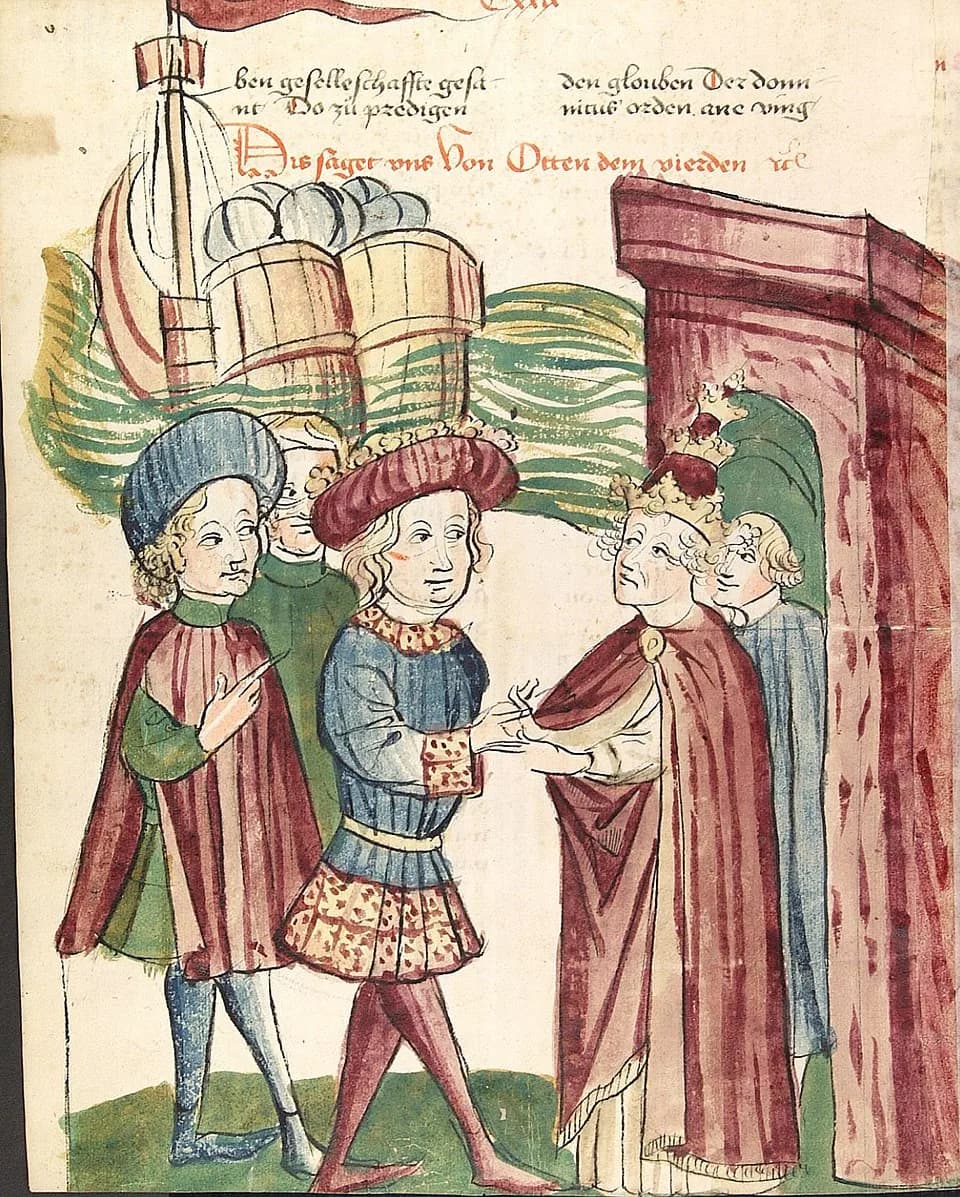 ben geselleschaffte gesa
nt Do zů predigen
den glouben Der domi
nicus orden ane
Dis saget vns Von Otten dem vierden